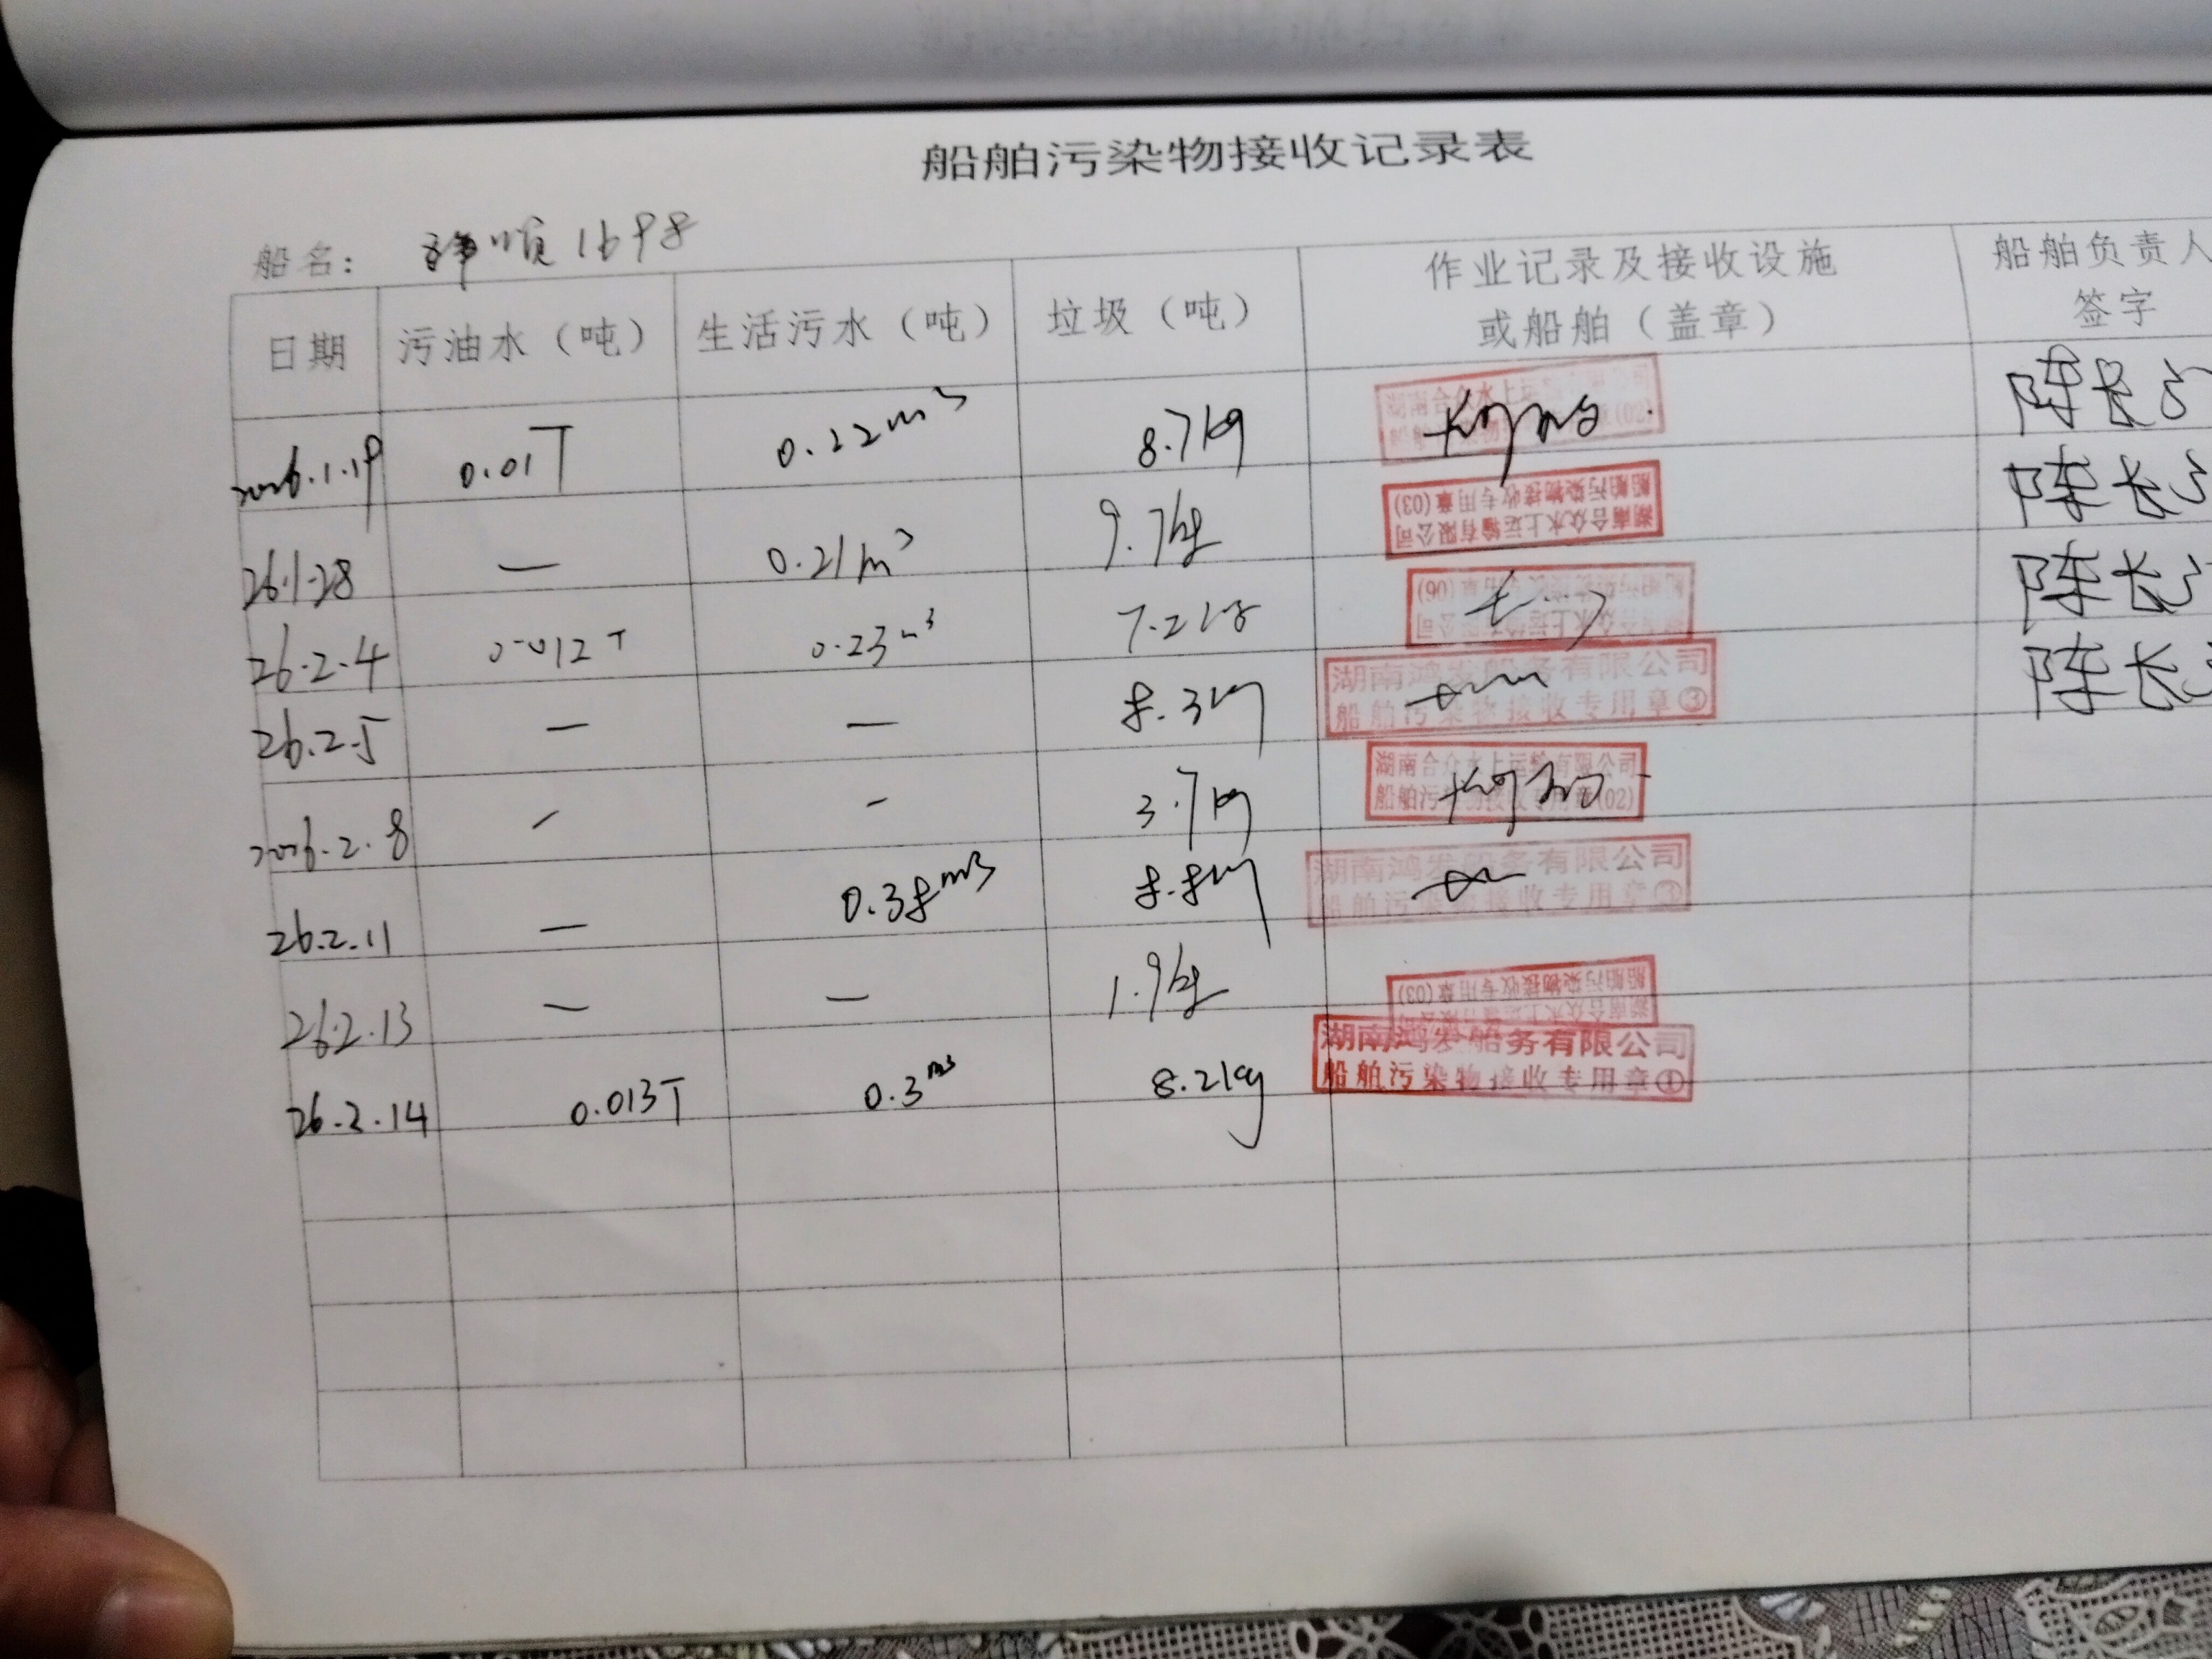 船舶污染物接收记录表
船名： 顺1698
日期 污油水（吨） 生活污水（吨） 垃圾（吨） 作业记录及接收设施或船舶（盖章） 船舶负责人签字
2026.1.19 0.01T 0.22m³ 8.7kg 湖南合众水上运 船舶污染物 章(02) 陈长
26.1.28 — 0.21m³ 9.7kg 湖南合众水上运输有限公司 船舶污染物接收专用章(03) 陈长
26.2.4 0.012T 0.23m³ 7.2kg 合众水上运输 公司 专用章(06) 陈长
26.2.5 — — 8.3kg 湖南鸿发船务有限公司 船舶污染物接收专用章③ 陈长
2026.2.8 — — 3.7kg 湖南合众水上运输有限公司 船舶污染物接收专用章(02)
26.2.11 — 0.38m³ 8.8kg 湖南鸿发船务有限公司 船舶污染物接收专用章
26.2.13 — — 1.9kg 湖南合众水上运输有限公司 船舶污染物接收专用章(03)
26.2.14 0.013T 0.3m³ 8.2kg 湖南鸿发船务有限公司 船舶污染物接收专用章①